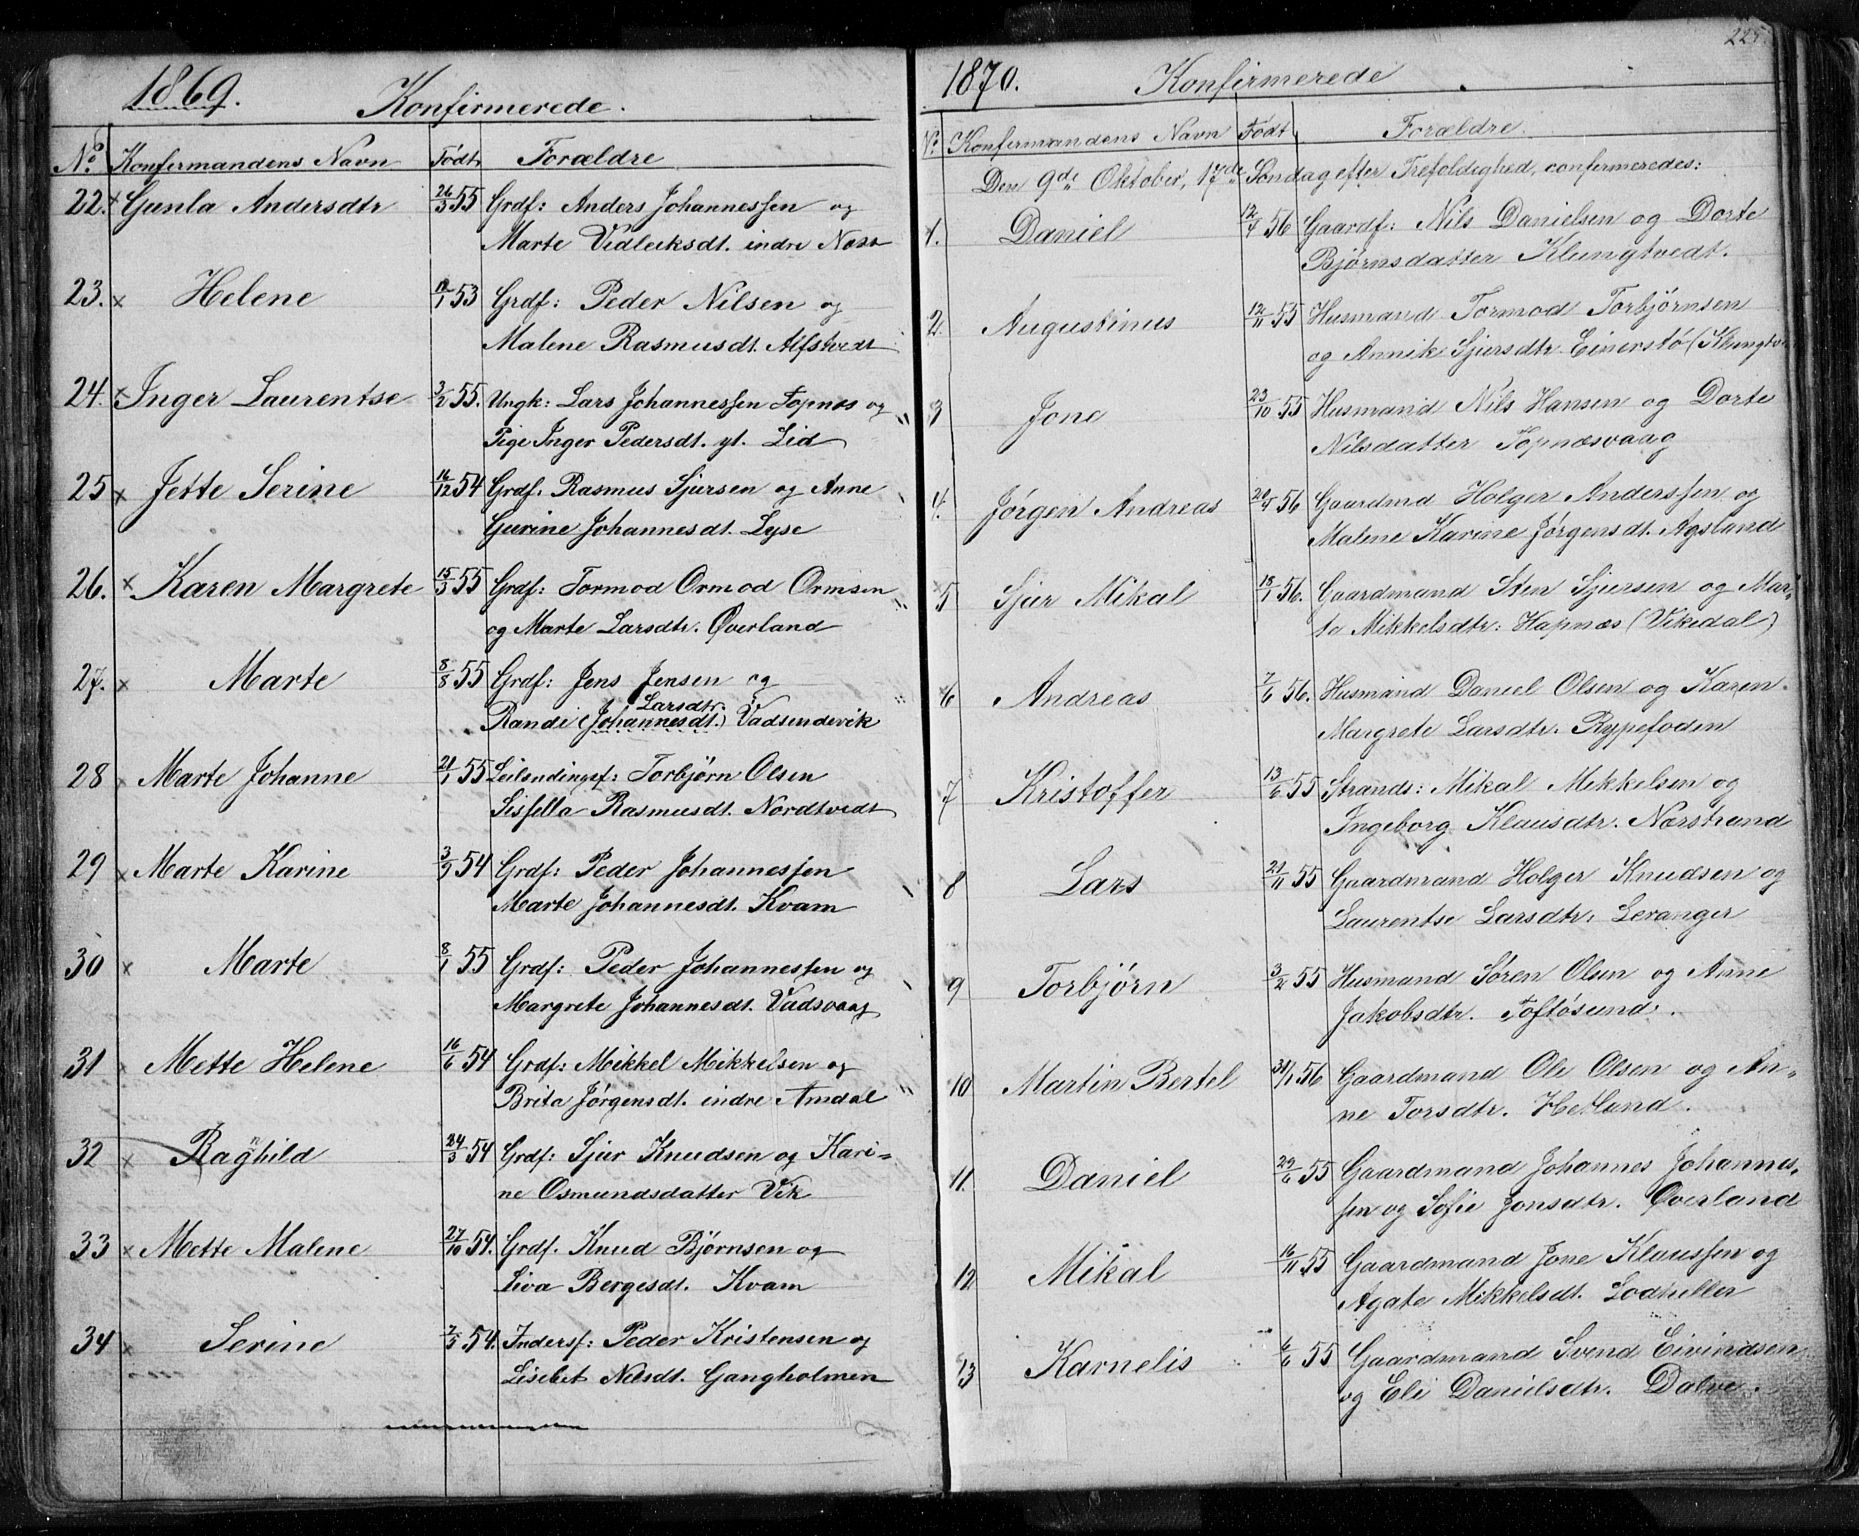 1869.
Konfirmerede.
No Konfermandens Navn Födt. Forældre
22. × Gunla Andersdtr 26/3 55 Grdf: Anders Johannessen og
Marte Vidleiksdt. indre Næss
23. × Helene 53 Grdf: Peder Nilsen og
Malene Rasmusdt. Alfstvedt
24. × Inger Laurentse 3/2 55. Ungk: Lars Johannessen Topnæs og
Pige Inger Pedersdt. yt. Lid
25 × Jette Serine 16/12 54 Grdf. Rasmus Sjursen og Anne
Gurine Johannesdt. Lyse
26. × Karen Margrete 15/3 55 Grdf: Tormod Ormod Ormsen
og Marte Larsdtr. Øverland
27. × Marte 8/8 55 Grdf: Jens Jensen og
Larsdtr.
Randi (Johannesdt.) Vadsendevik
28 × Marte Johanne 21/1 55 Leilændingsf: Torbjørn Olsen
Sissella Rasmusdt. Nordtvedt
29 × Marte Karine 3/9 54 Grdf: Peder Johannessen
Marte Johannesdt. Kvam
30 × Marte 8/1 55 Grdf: Peder Johannessen og
Margrete Johannesdt. Vadsvaag
31 × Mette Helene 16/6 54 Grdf: Mikkel Mikkelsen og
Brita Jørgensdt. indre Amdal
32 × Raghild 24/3 54 Grdf: Sjur Knudsen og Kari=
ne Osmundsdatter Vik
33 × Mette Malene 27/10 54. Grdf. Knud Bjørnsen og
Siva Bergesdt. Kvam
34 × Serine 7/5 54. Indersf: Peder Kristensen og
Lisebet Nilsdt. Gangholmen
225.
1870. Konfirmerede
No. Konfermandens Navn Födt Forældre.
Den 9de Oktober, 17de Søndag efter Trefoldighed, confermeredes:
1. Daniel 12/4 56 Gaardf: Nils Danielsen og Dorte
Bjørnsdatter Klungtvedt.
2. Augustinus 12/11 55 Husmand Tormod Torbjørnsen
og Annik Sjursdtr. Einerstø (Klungtv
3 Jone 23/10 55 Husmand Nils Hansen og Dorte
Nilsdatter Topnæsvaag
4. Jørgen Andreas 20/4 56 Gaardmd Holger Anderssen og
Malene Karine Jørgensdt. Agsland
5 Sjur Mikal 18/1 56. Gaardmand Sten Sjursen og Mar=
te Mikkelsdtr: Hapnæs (Vikedal)
6 Andreas 7/6 56. Husmand Daniel Olsen og Karen
Margrete Larsdtr. Rypefoden
7 Kristoffer 13/6 55 Strands: Mikal Mekkelsen og
Ingeborg Klausdtr. Nærstrand
8 Lars 21/11 55 Gaardmand Holger Knudsen og
Laurentse Larsdtr. Leranger
9 Torbjørn 3/2 55 Husmand Søren Olsen og Anne
Jakobsdtr. Toftøsund.
10 Martin Bertel 31/1 56 Gaardmand Ole Olsen og An=
ne Torsdtr. Hetland.
11. Daniel 29/6 55 Gaardmand Johannes Johannes,
sen og Sofie Jonsdtr. Øverland
12 Mikal 16/11 55 Gaardmand Jone Klaussen og
Agate Mikkelsdt. Lodheller
13 Karnelis 6/6 55 Gaardmand Svend Eivindsen
og Eli Danielsdtr. Dalve.